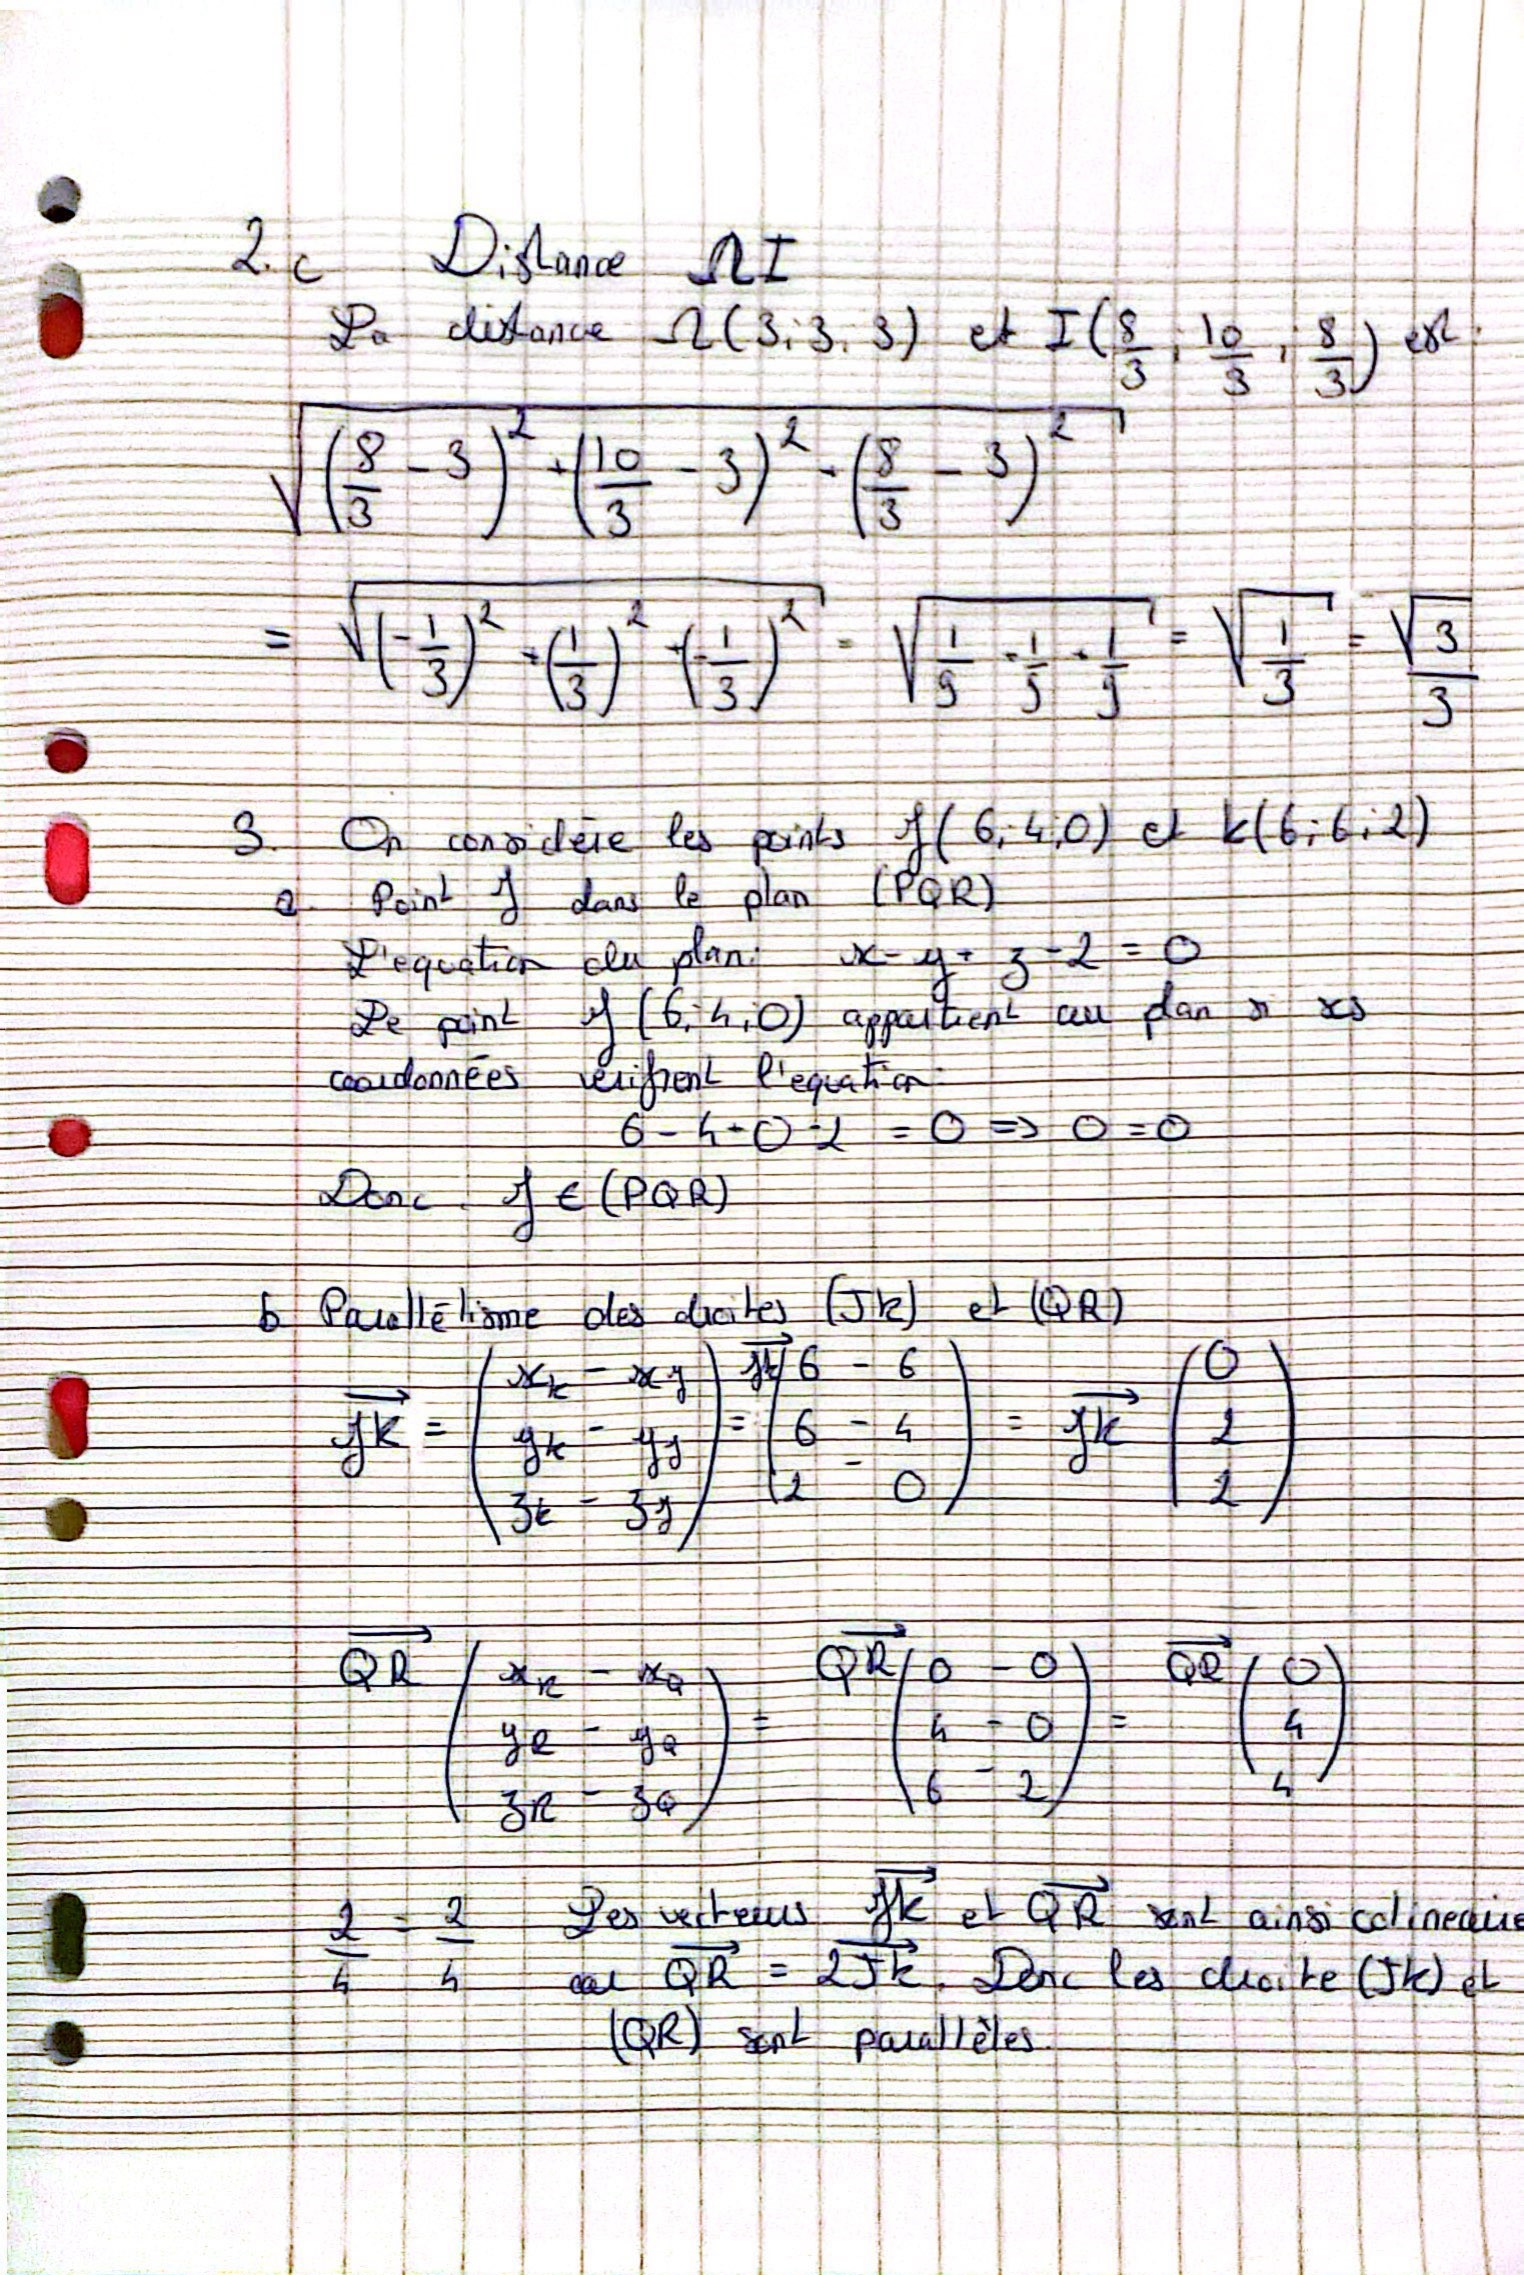 2. c Distance ΩI
La distance Ω(3; 3; 3) et I(8/3; 10/3; 8/3) est:
√((8/3 - 3)² + (10/3 - 3)² + (8/3 - 3)²)
= √((-1/3)² + (1/3)² + (-1/3)²) = √(1/9 + 1/9 + 1/9) = √(1/3) = √3/3
3. On considère les points J(6; 4; 0) et K(6; 6; 2)
a. Point J dans le plan (PQR)
L'equation du plan: x - y + z - 2 = 0
Le point J(6; 4; 0) appartient au plan si ses
coordonnées vérifient l'equation:
6 - 4 + 0 - 2 = 0 => 0 = 0
Donc. J ∈ (PQR)
b Parallélisme des droites (JK) et (QR)
JK→ = (xK - xJ ; yK - yJ ; zK - zJ) = JK→ (6 - 6 ; 6 - 4 ; 2 - 0) = JK→ (0 ; 2 ; 2)
QR→ (xR - xQ ; yR - yQ ; zR - zQ) = QR→ (0 - 0 ; 4 - 0 ; 6 - 2) = QR→ (0 ; 4 ; 4)
2/4 = 2/4 Les vecteurs JK→ et QR→ sont ainsi colineaire
car QR→ = 2JK→. Donc les droite (JK) et
(QR) sont parallèles.